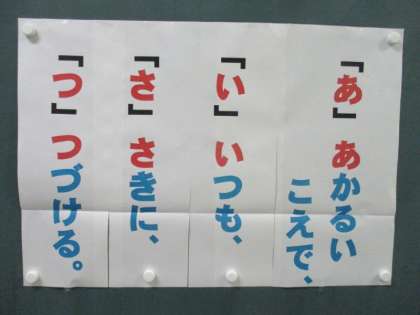 「あ」あかるい
こえで、
「い」いつも、
「さ」さきに、
「つ」つづける。